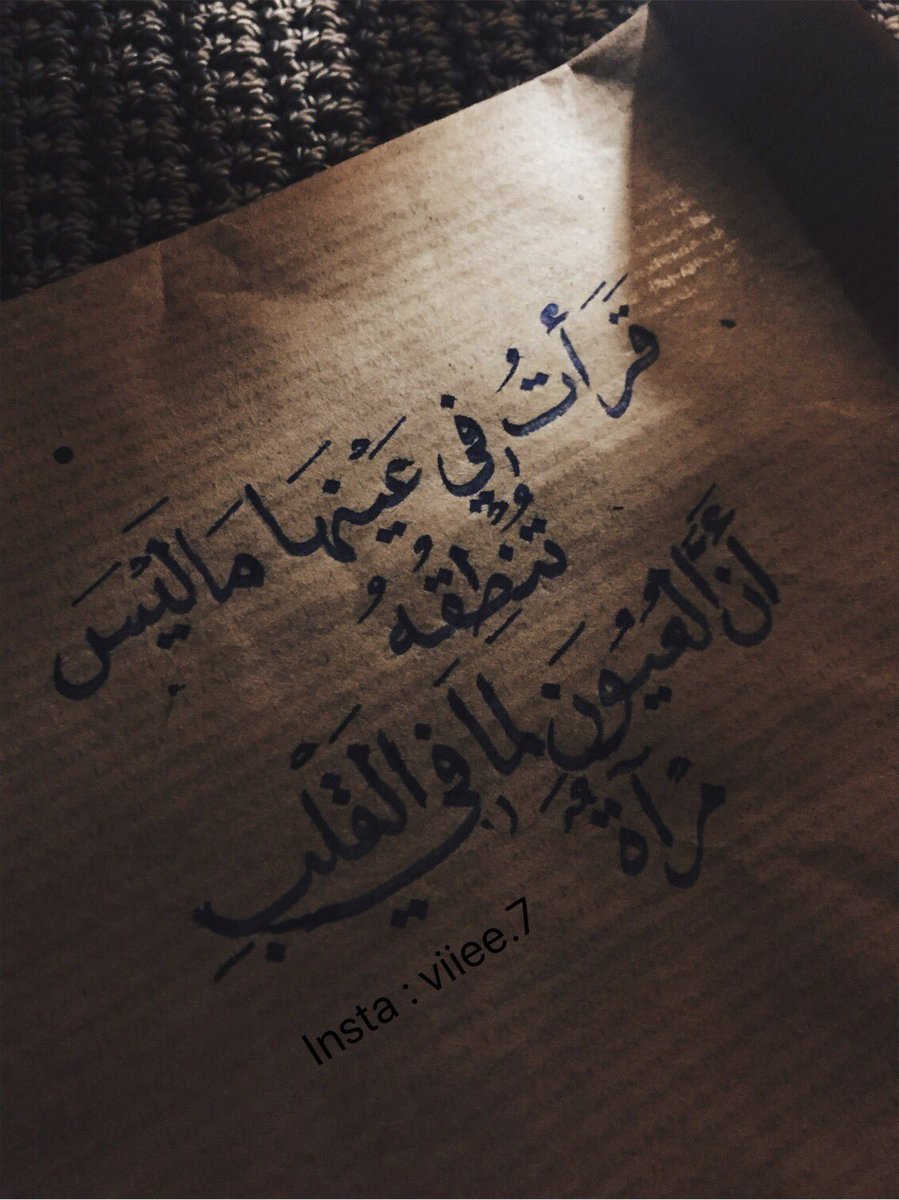 قَرَأتُ فِي عَيْنِهَا مَا لَيْسَ
تُنْطِقُهُ
أنَّ العُيُونَ لِمَا فِي القَلْبِ
مِرْآةٌ
Insta : viiee.7